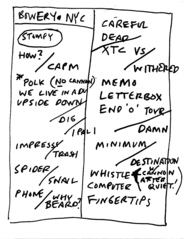 BOWERY • NYC
STUMPY
HOW?/
CAPM
*POLK (NO CANNON)
WE LIVE IN A DJ
UPSIDE DOWN
DIG
(PAL)
IMPRESS/
TRASH
SPIDER/
SNAIL
PHONE/WHY
BEARD?
CAREFUL
DEAD
XTC VS
WITHERED
MEMO
LETTERBOX
END 'O' TOUR
DAMN
MINIMUM
DESTINATION
WHISTLE (CANNON
COMPUTER AFTER
QUIET!)
FINGERTIPS